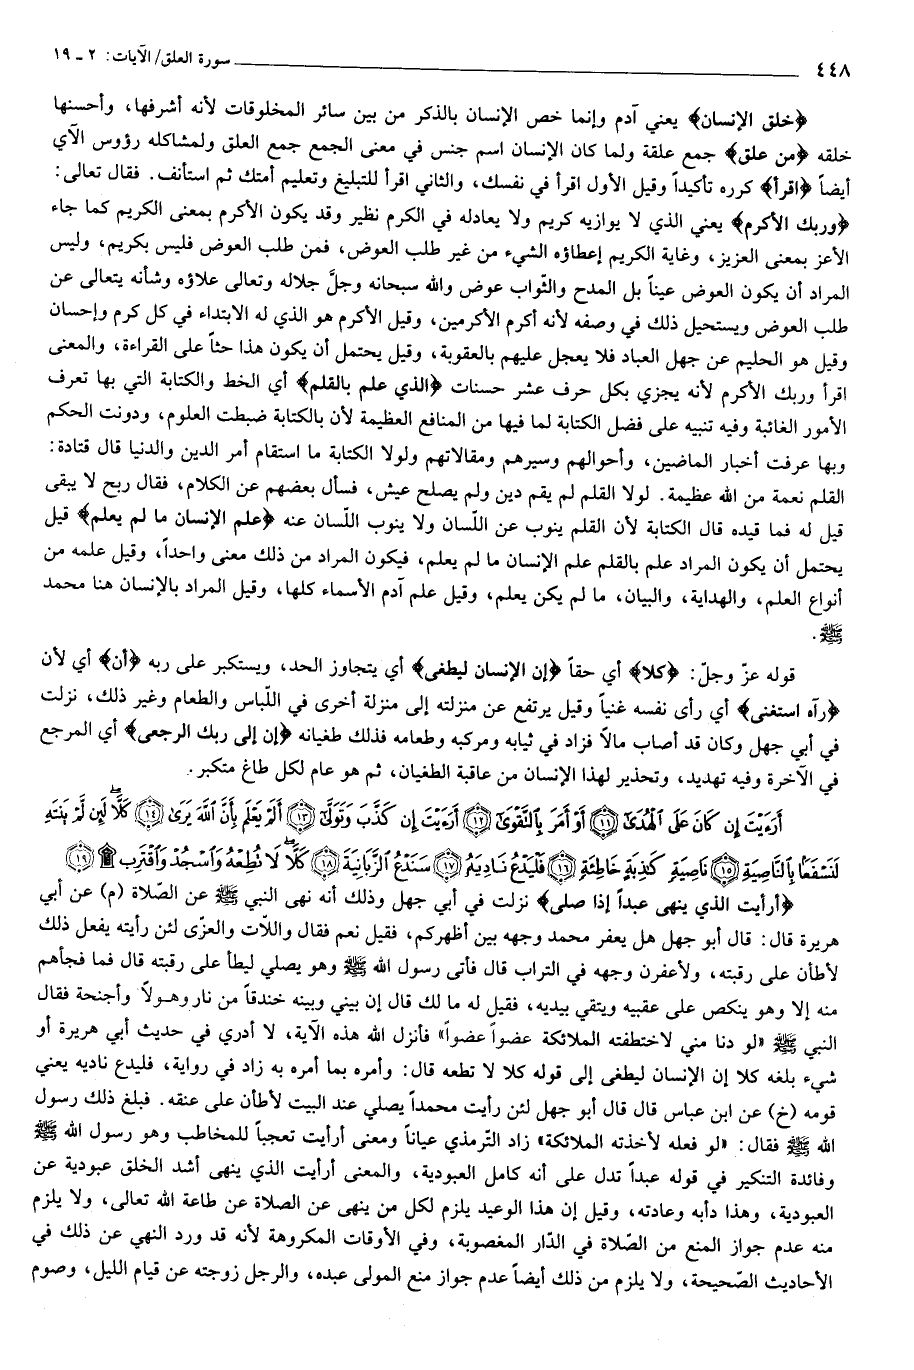 ٤٤٨ سورة العلق/ الآيات: ٢ ـ ١٩
﴿خلق الإنسان﴾ يعني آدم وإنما خص الإنسان بالذكر من بين سائر المخلوقات لأنه أشرفها، وأحسنها
خلقه ﴿من علق﴾ جمع علقة ولما كان الإنسان اسم جنس في معنى الجمع جمع العلق ولمشاكله رؤوس الآي
أيضاً ﴿اقرأ﴾ كرره تأكيداً وقيل الأول اقرأ في نفسك، والثاني اقرأ للتبليغ وتعليم أمتك ثم استأنف. فقال تعالى:
﴿وربك الأكرم﴾ يعني الذي لا يوازيه كريم ولا يعادله في الكرم نظير وقد يكون الأكرم بمعنى الكريم كما جاء
الأعز بمعنى العزيز، وغاية الكريم إعطاؤه الشيء من غير طلب العوض، فمن طلب العوض فليس بكريم، وليس
المراد أن يكون العوض عيناً بل المدح والثّواب عوض والله سبحانه وجلَّ جلاله وتعالى علاؤه وشأنه يتعالى عن
طلب العوض ويستحيل ذلك في وصفه لأنه أكرم الأكرمين، وقيل الأكرم هو الذي له الابتداء في كل كرم وإحسان
وقيل هو الحليم عن جهل العباد فلا يعجل عليهم بالعقوبة، وقيل يحتمل أن يكون هذا حثاً على القراءة، والمعنى
اقرأ وربك الأكرم لأنه يجزي بكل حرف عشر حسنات ﴿الذي علم بالقلم﴾ أي الخط والكتابة التي بها تعرف
الأمور الغائبة وفيه تنبيه على فضل الكتابة لما فيها من المنافع العظيمة لأن بالكتابة ضبطت العلوم، ودونت الحكم
وبها عرفت أخبار الماضين، وأحوالهم وسيرهم ومقالاتهم ولولا الكتابة ما استقام أمر الدين والدنيا قال قتادة:
القلم نعمة من الله عظيمة. لولا القلم لم يقم دين ولم يصلح عيش، فسأل بعضهم عن الكلام، فقال ربح لا يبقى
قيل له فما قيده قال الكتابة لأن القلم ينوب عن اللّسان ولا ينوب اللّسان عنه ﴿علم الإنسان ما لم يعلم﴾ قيل
يحتمل أن يكون المراد علم بالقلم علم الإنسان ما لم يعلم، فيكون المراد من ذلك معنى واحداً، وقيل علمه من
أنواع العلم، والهداية، والبيان، ما لم يكن يعلم، وقيل علم آدم الأسماء كلها، وقيل المراد بالإنسان هنا محمد
ﷺ.
قوله عزّ وجلّ: ﴿كلا﴾ أي حقاً ﴿إن الإنسان ليطغى﴾ أي يتجاوز الحد، ويستكبر على ربه ﴿أن﴾ أي لأن
﴿رآه استغنى﴾ أي رأى نفسه غنياً وقيل يرتفع عن منزلته إلى منزلة أخرى في اللّباس والطعام وغير ذلك، نزلت
في أبي جهل وكان قد أصاب مالاً فزاد في ثيابه ومركبه وطعامه فذلك طغيانه ﴿إن إلى ربك الرجعى﴾ أي المرجع
في الآخرة وفيه تهديد، وتحذير لهذا الإنسان من عاقبة الطغيان، ثم هو عام لكل طاغ متكبر.
أَرَءَيْتَ إِن كَانَ عَلَى ٱلْهُدَىٰٓ ﴿١١﴾ أَوْ أَمَرَ بِٱلتَّقْوَىٰٓ ﴿١٢﴾ أَرَءَيْتَ إِن كَذَّبَ وَتَوَلَّىٰٓ ﴿١٣﴾ أَلَمْ يَعْلَم بِأَنَّ ٱللَّهَ يَرَىٰ ﴿١٤﴾ كَلَّا لَئِن لَّمْ بَنتَهِ
لَنَسْفَعًۢا بِٱلنَّاصِيَةِ ﴿١٥﴾ نَاصِيَةٍ كَٰذِبَةٍ خَاطِئَةٍ ﴿١٦﴾ فَلْيَدْعُ نَادِيَهُۥ ﴿١٧﴾ سَنَدْعُ ٱلزَّبَانِيَةَ ﴿١٨﴾ كَلَّا لَا تُطِعْهُ وَٱسْجُدْ وَٱقْتَرِب ۩ ﴿١٩﴾
﴿أرأيت الذي ينهى عبداً إذا صلى﴾ نزلت في أبي جهل وذلك أنه نهى النبي ﷺ عن الصّلاة (م) عن أبي
هريرة قال: قال أبو جهل هل يعفر محمد وجهه بين أظهركم، فقيل نعم فقال واللّات والعزّى لئن رأيته يفعل ذلك
لأطأن على رقبته، ولأعفرن وجهه في التراب قال فأتى رسول الله ﷺ وهو يصلي ليطأ على رقبته قال فما فجأهم
منه إلا وهو ينكص على عقبيه ويتقي بيديه، فقيل له ما لك قال إن بيني وبينه خندقاً من نار وهولاً وأجنحة فقال
النبي ﷺ «لو دنا مني لاختطفته الملائكة عضواً عضواً» فأنزل الله هذه الآية، لا أدري في حديث أبي هريرة أو
شيء بلغه كلا إن الإنسان ليطغى إلى قوله كلا لا تطعه قال: وأمره بما أمره به زاد في رواية، فليدع ناديه يعني
قومه (خ) عن ابن عباس قال قال أبو جهل لئن رأيت محمداً يصلي عند البيت لأطأن على عنقه. فبلغ ذلك رسول
الله ﷺ فقال: «لو فعله لأخذته الملائكة» زاد التّرمذي عياناً ومعنى أرأيت تعجباً للمخاطب وهو رسول الله ﷺ
وفائدة التنكير في قوله عبداً تدل على أنه كامل العبودية، والمعنى أرأيت الذي ينهى أشد الخلق عبودية عن
العبودية، وهذا دأبه وعادته، وقيل إن هذا الوعيد يلزم لكل من ينهى عن الصلاة عن طاعة الله تعالى، ولا يلزم
منه عدم جواز المنع من الصّلاة في الدّار المغصوبة، وفي الأوقات المكروهة لأنه قد ورد النهي عن ذلك في
الأحاديث الصّحيحة، ولا يلزم من ذلك أيضاً عدم جواز منع المولى عبده، والرجل زوجته عن قيام الليل، وصوم